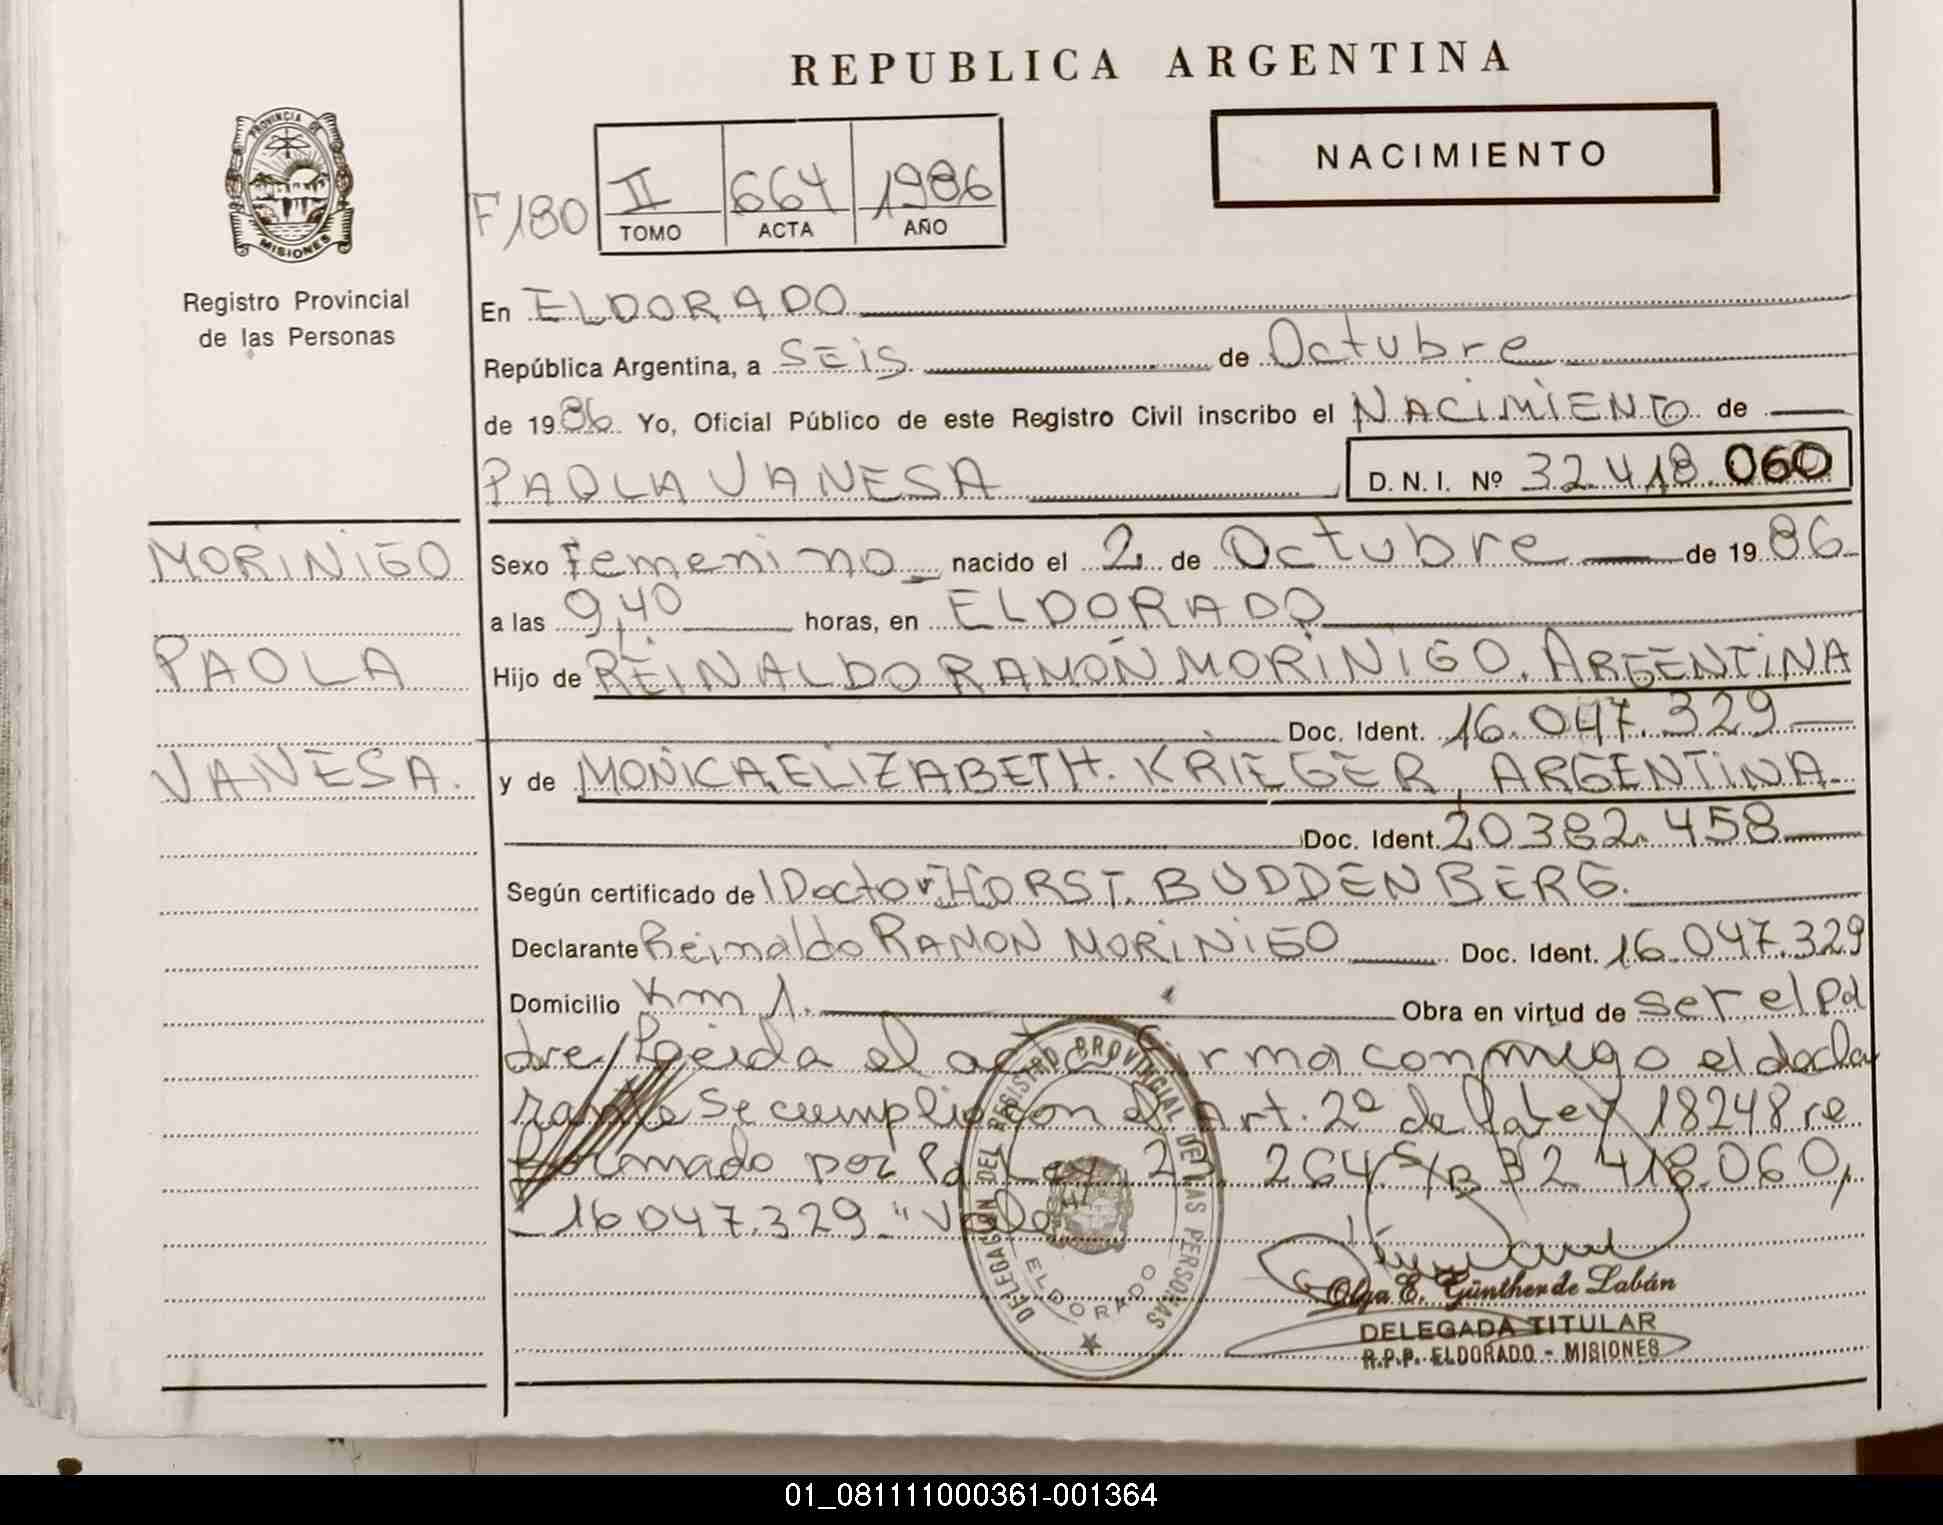 REPUBLICA ARGENTINA
PROVINCIA DE
MISIONES
Registro Provincial
de las Personas
NACIMIENTO
F/180
II 664 1986
TOMO ACTA AÑO
En ELDORADO
República Argentina, a SEIS de Octubre
de 1986 Yo, Oficial Público de este Registro Civil inscribo el NACIMIENTO de
PAOLA VANESA D. N. I. Nº 32.418.060
MORINIGO
PAOLA
VANESA.
Sexo Femenino nacido el 2 de Octubre de 1986
a las 9,40 horas, en ELDORADO
Hijo de REINALDO RAMON MORINIGO. ARGENTINA
Doc. Ident. 16.047.329
y de MONICA ELIZABETH. KRIEGER, ARGENTINA.
Doc. Ident. 20382.458
Según certificado de l Doctor HORST. BUDDENBERG.
Declarante Reinaldo RAMON MORINIGO Doc. Ident. 16.047.329
Domicilio Km 1. Obra en virtud de ser el pa
dre Leida el acta firma conmigo el decla
rante Se cumplio con el Art. 2º de la Ley 18248 re
formado por la Ley 23.264 S/B 32.418.060,
16 047.329 "Vale"
DELEGACION DEL REGISTRO PROVINCIAL DE LAS PERSONAS
ELDORADO
Olga E. Günther de Labán
DELEGADA TITULAR
R.P.P. ELDORADO - MISIONES
01_081111000361-001364